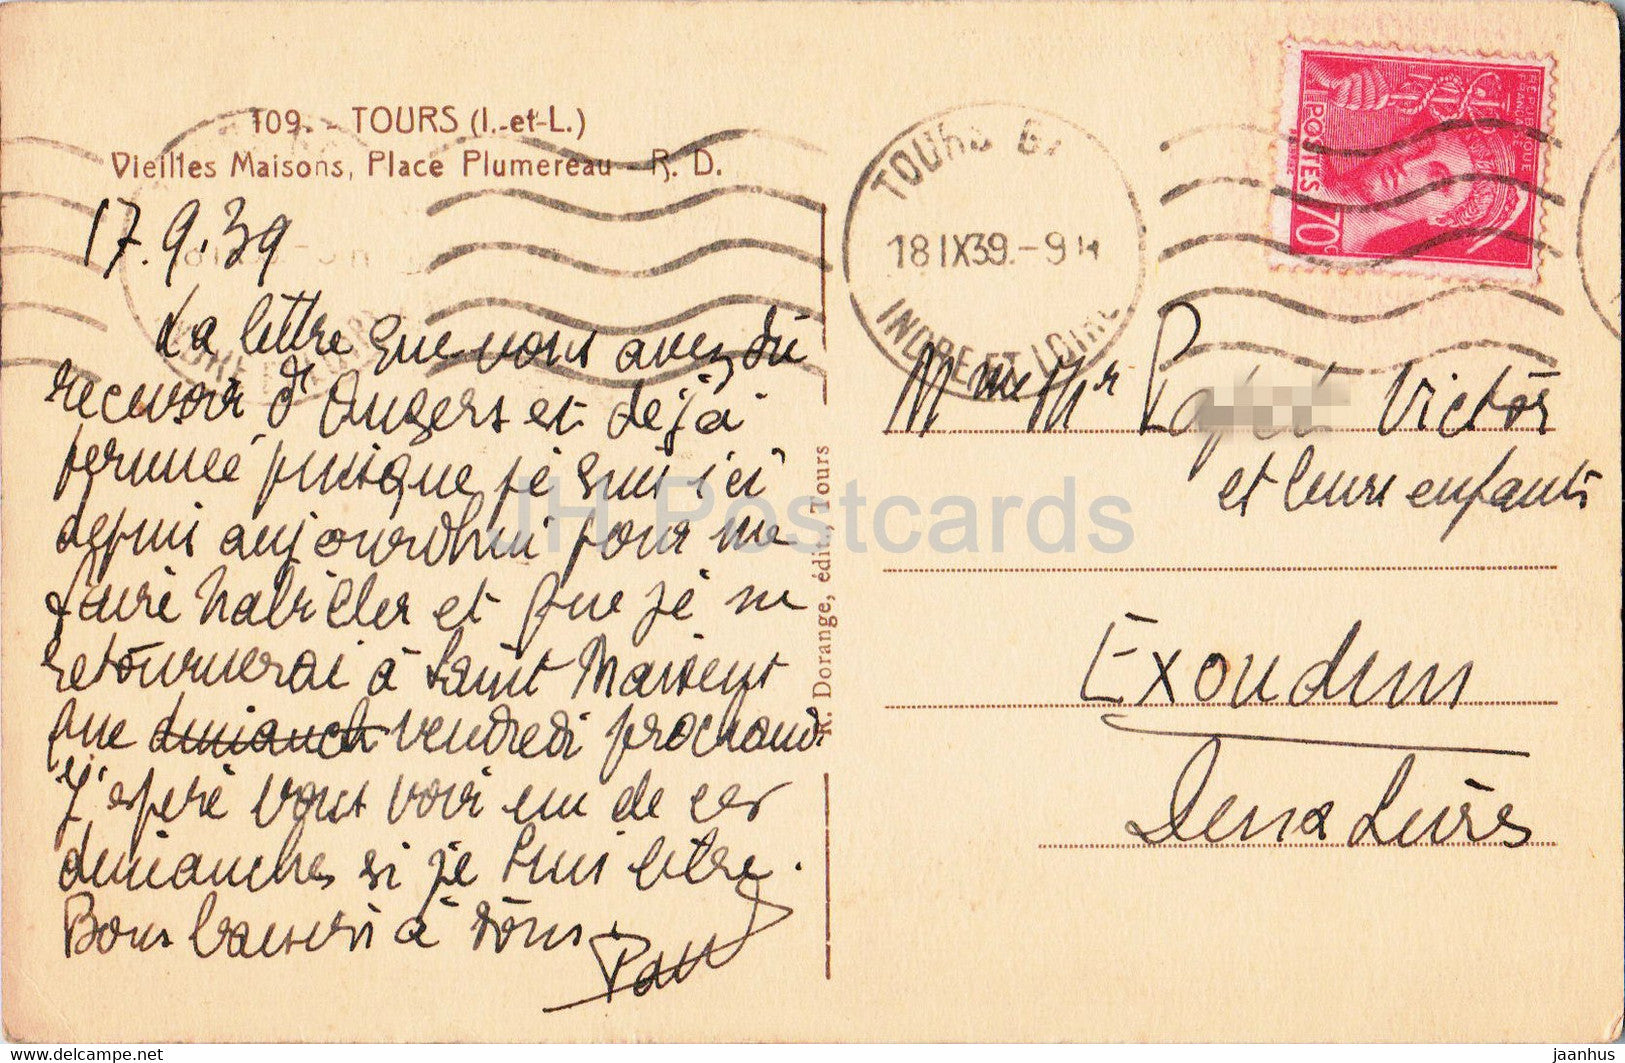 109. - TOURS (I.-et-L.)
Vieilles Maisons, Place Plumereau - R. D.
17.9.39
La lettre que vous avez dû
recevoir d'Angers est déjà
périmée puisque je suis ici
depuis aujourdhui pour me
faire habiller et que je ne
retournerai à Saint Maixent
que dimanche vendredi prochain.
J'espère vous voir un de ces
dimanches si je suis libre.
Bons baisers à tous.
R. Dorange, édit., Tours
TOURS
18 IX39.-9H
INDRE ET LOIRE
REPUBLIQUE
FRANÇAISE
POSTES
70c
Mme et Mr Victor
et leurs enfants
Exoudun
Deux Sèvres
JH Postcards
www.delcampe.net
jaanhus